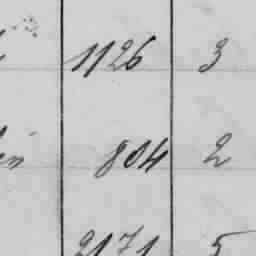 1126 3
804 2
2171 5